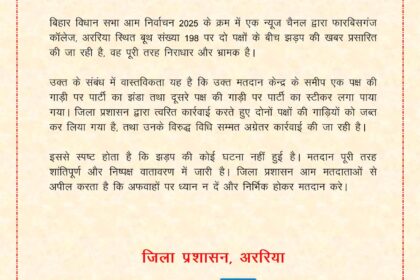 बिहार विधान सभा आम निर्वाचन 2025 के क्रम में एक न्यूज चैनल द्वारा फारबिसगंज
कॉलेज, अररिया स्थित बूथ संख्या 198 पर दो पक्षों के बीच झड़प की खबर प्रसारित
की जा रही है, वह पूरी तरह निराधार और भ्रामक है।
उक्त के संबंध में वास्तविकता यह है कि उक्त मतदान केन्द्र के समीप एक पक्ष की
गाड़ी पर पार्टी का झंडा तथा दूसरे पक्ष की गाड़ी पर पार्टी का स्टीकर लगा पाया
गया। जिला प्रशासन द्वारा त्वरित कार्रवाई करते हुए दोनों पक्षों की गाड़ियों को जब्त
कर लिया गया है, तथा उनके विरुद्ध विधि सम्मत अग्रेतर कार्रवाई की जा रही है।
इससे स्पष्ट होता है कि झड़प की कोई घटना नहीं हुई है। मतदान पूरी तरह
शांतिपूर्ण और निष्पक्ष वातावरण में जारी है। जिला प्रशासन आम मतदाताओं से
अपील करता है कि अफवाहों पर ध्यान न दें और निर्भिक होकर मतदान करे।
जिला प्रशासन, अररिया